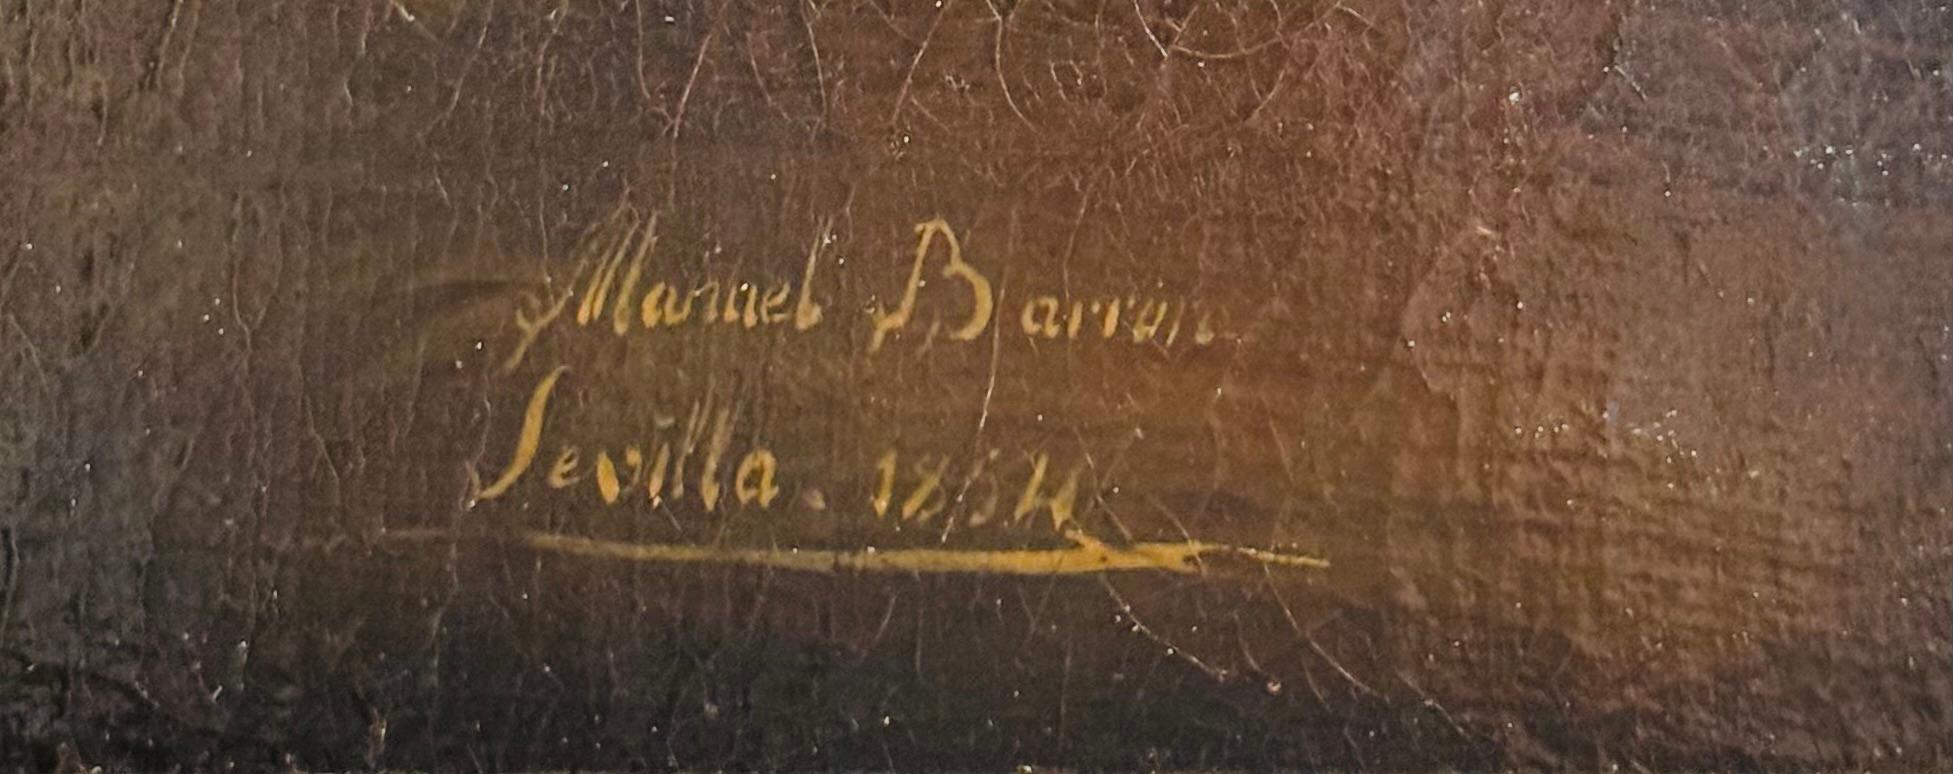 Manuel Barron
Sevilla. 1854